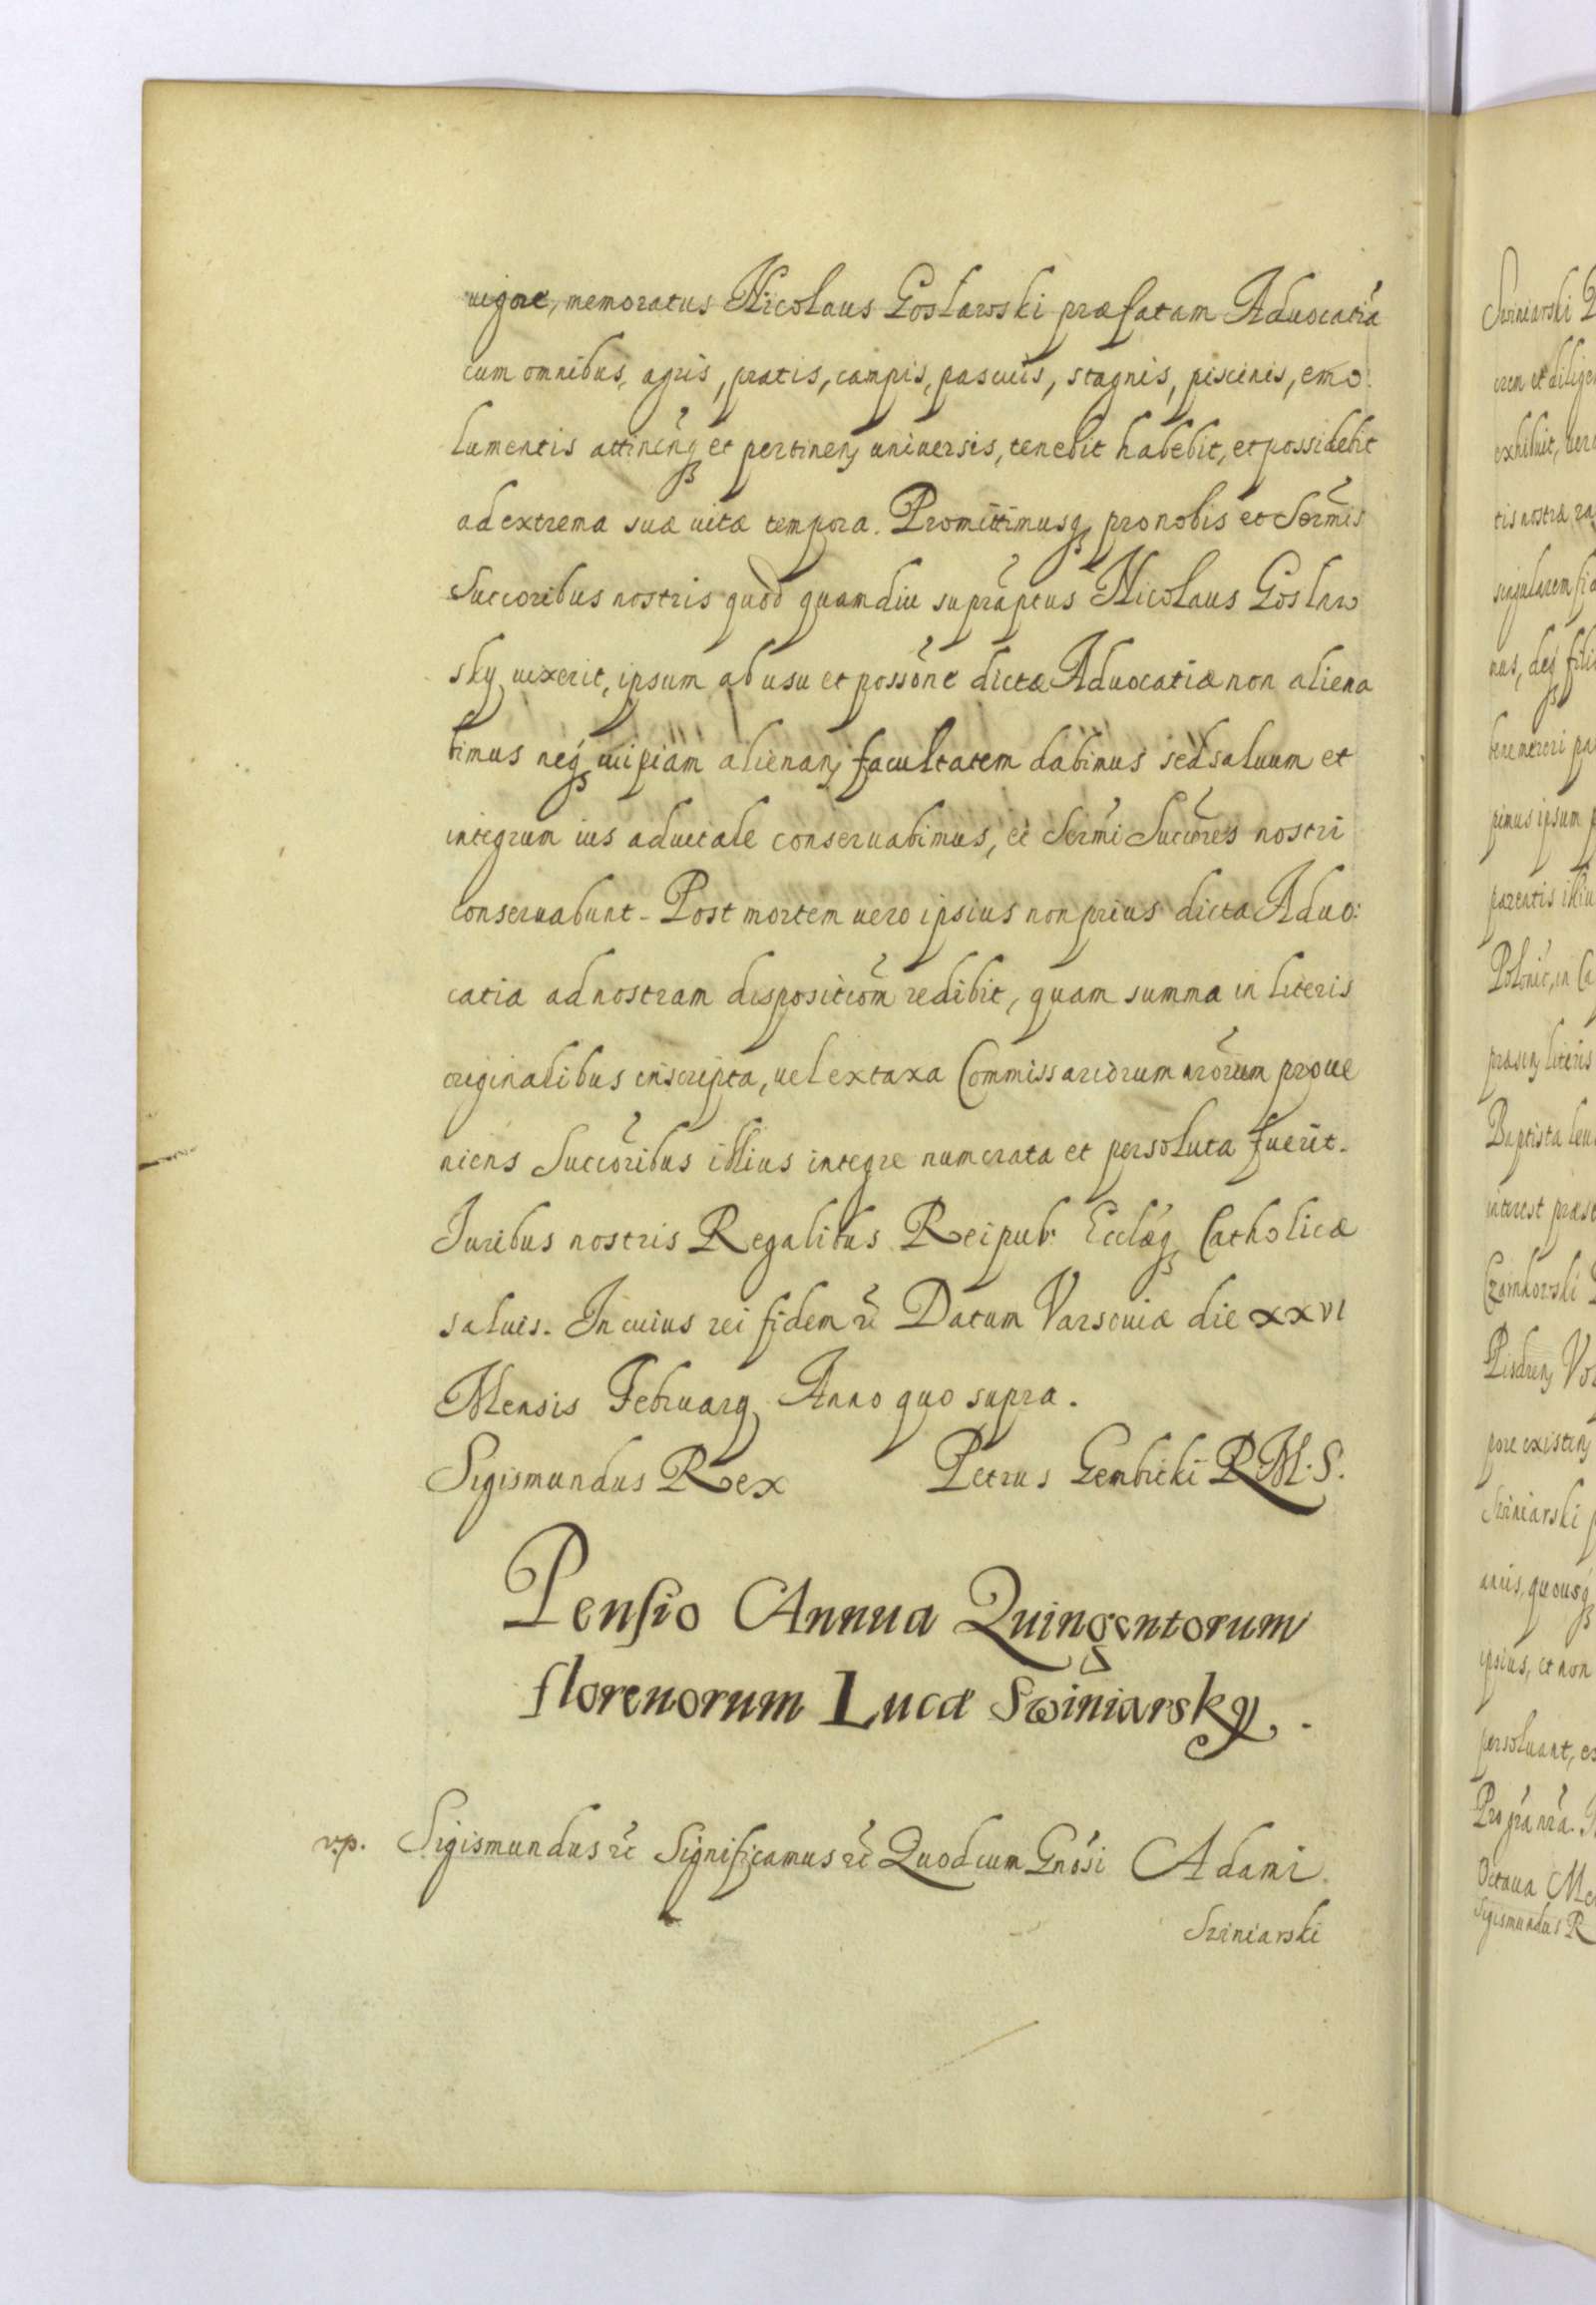 uigore, memoratus Nicolaus Goslawski præfatam Aduocatiã
cum omnibus, agris, pratis, campis, pascuis, stagnis, piscinis, emo:
lumentis attineñq et pertineñ uniuersis, tenebit habebit, et possidebit
ad extrema suæ uitæ tempora. Promittimusq pro nobis et Serm̃is
Succoribus nostris quod quamdiu suprãptus Nicolaus Goslaw
sky uixerit, ipsum ab usu et possõne dictæ Aduocatiæ non aliena
bimus neq cuipiam alienañ facultatem dabimus sed saluum et
integrum ius aduitale conseruabimus, et Serm̃i Succõres nostri
conseruabunt. Post mortem uero ipsius non prius dicta Aduo:
catia ad nostram dispositiõm redibit, quam summa in literis
originalibus inscripta, uel ex taxa Commissariorum nr̃orum proue
niens Succõribus illius integre numerata et persoluta fuerit.
Iuribus nostris Regalibus Reipub: Ecclæq Catholicæ
saluis. In cuius rei fidem rc̃ Datum Varsouiæ die XXVI
Mensis Februarij Anno quo supra.
Sigismundus Rex Petrus Gembicki R.M.S.
Pensio Annua Quingentorum
florenorum Lucæ Swiniarsky.
v.p. Sigismundus rc̃ Significamus rc̃ Quod cum Gnõsi Adami
Swiniarski
Swiniarski
exhibuit,
tis nostra
singularem
nus, deq
benemereri
pimus ipsum
parentis illiu
Polonic, in
præseñ literis
Baptista
interest
Czarnkowski
Pisdreñ
pore existeñ
Swiniarski
ipsius, et non
persoluant,
Octaua
Sigismundus R